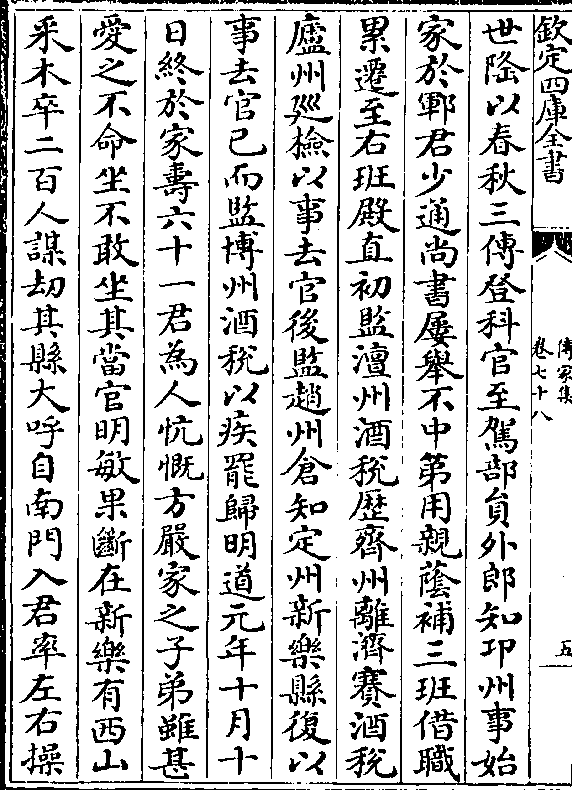 欽定四庫全書
傳家集
卷七十八
五
世隆以春秋三傳登科官至駕部員外郎知邛州事始
家於鄆君少通尚書屢舉不中第用親蔭補三班借職
累遷至右班殿直初監澶州酒稅歷齊州離濟賽酒稅
廬州廵檢以事去官後監趙州倉知定州新樂縣復以
事去官已而監博州酒稅以疾罷歸明道元年十月十
日終於家壽六十一君為人忼慨方嚴家之子弟雖甚
愛之不命坐不敢坐其當官明敏果斷在新樂有西山
采木卒二百人謀刼其縣大呼自南門入君率左右操